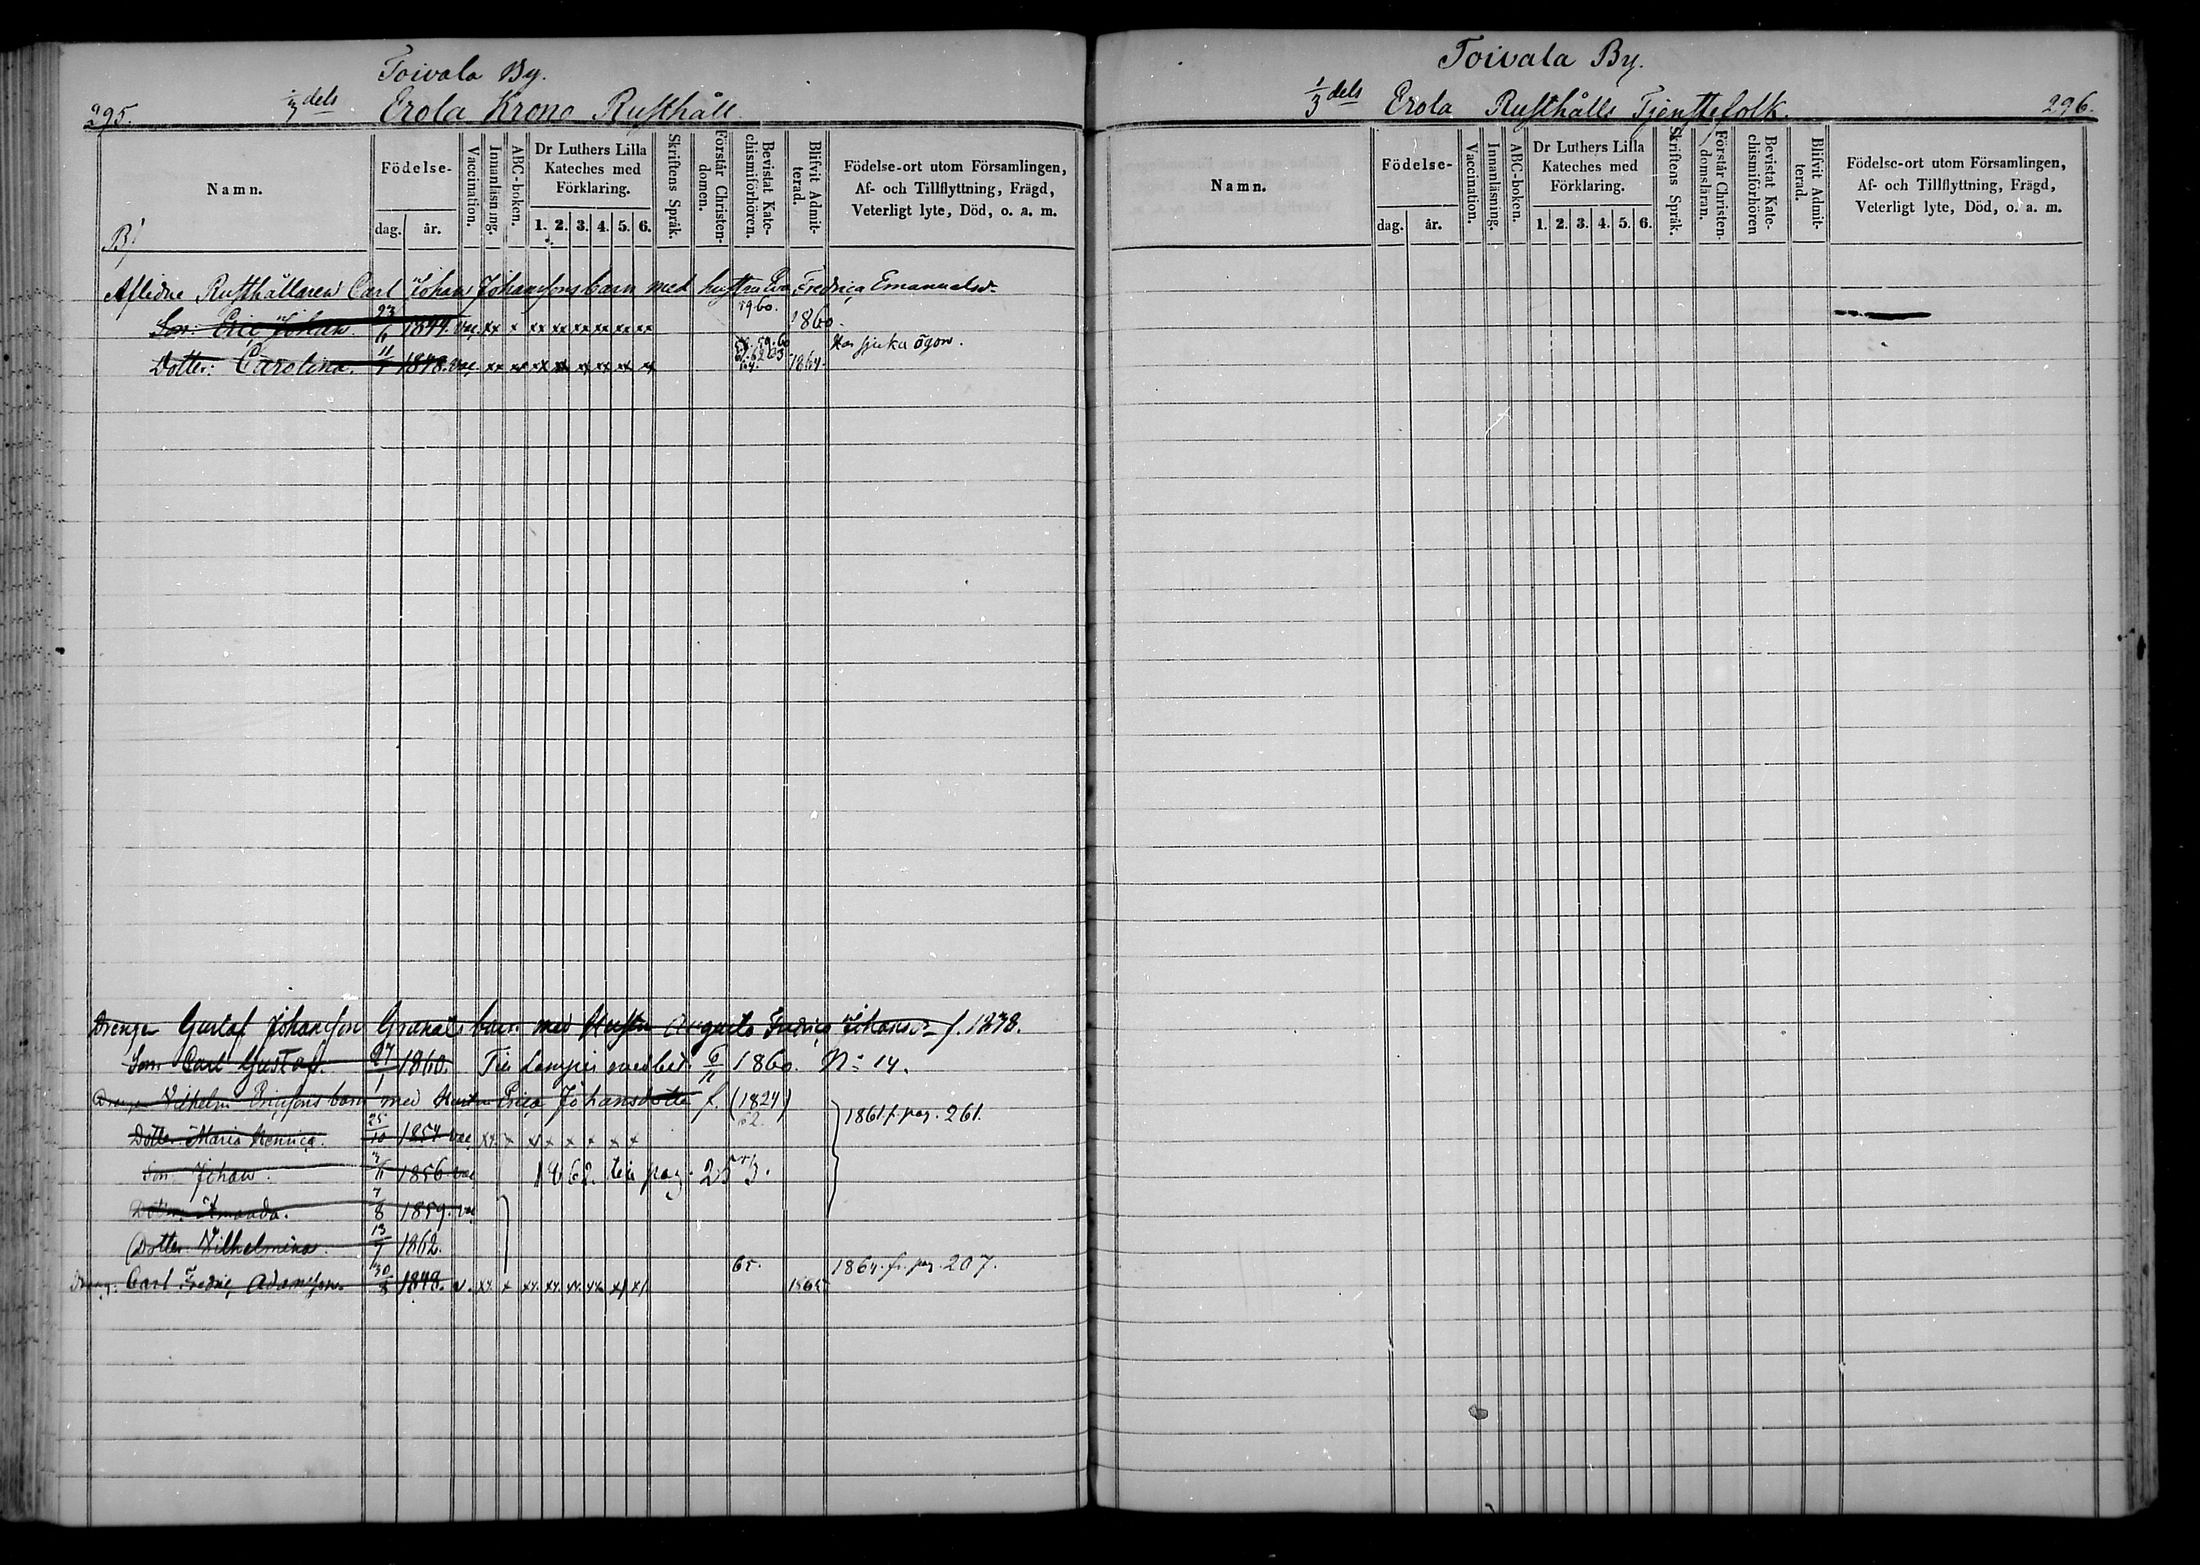 Toivola By.
295. 1/3 dels Erola Krono Rusthåll.
Namn.
Födelse-
dag. år.
Vaccination.
Innanläsning.
ABC-boken.
Dr Luthers Lilla Kateches med Förklaring.
1. 2. 3. 4. 5. 6.
Skriftens Språk.
Förstår Christendomen.
Bevistat Katechismiförhören.
Blifvit Admitterad.
Födelse-ort utom Församlingen, Af- och Tillflyttning, Frägd, Veterligt lyte, Död, o. a. m.
B/
Aflidne Rusthållaren Carl Johan Johanssons barn med hustru Eva Fredrica Emanuelsd.
Son: Eric Johan. 23/6 1844. vac. xx x xx xx xx xx xx xx 59.60. 1860.
Dotter: Carolina. 1848. vac. xx xx xx xx xx xx xx xx 1864. Har sjuka ögon.
Drengen Gustaf Johansson Granats barn med Hustru Augusta Fredrica Johansd. f. 1838.
Son Carl Gustaf. 27/1 1860. Till Lempis med bet. 6/11 1860. No 14.
Dreng. Vilhelm Ericssons barn med Hustru Erica Johansdotter f. (1824) 62.
Dotter Maria Henrica. 25/10 1854 vac xx. x x x x x x x 1861 f. pag. 261.
Son Johan. 3/11 1856 vac 1862. till pag. 253.
Dotter Amanda. 7/8 1859. vac
Dotter Vilhelmina. 13/7 1862.
Dreng. Carl Fredric Adamsson. 30/8 1848. v. xx. x xx. xx. xx. xx. x/ x/. 65. 1865 1864. fr. pag. 207.
Toivala By.
1/3 dels Erola Rusthålls Tjenstefolk. 296.
Namn.
Födelse-
dag. år.
Vaccination.
Innanläsning.
ABC-boken.
Dr Luthers Lilla Kateches med Förklaring.
1. 2. 3. 4. 5. 6.
Skriftens Språk.
Förstår Christendomsläran.
Bevistat Katechismiförhören
Blifvit Admitterad.
Födelse-ort utom Församlingen, Af- och Tillflyttning, Frägd, Veterligt lyte, Död, o. a. m.